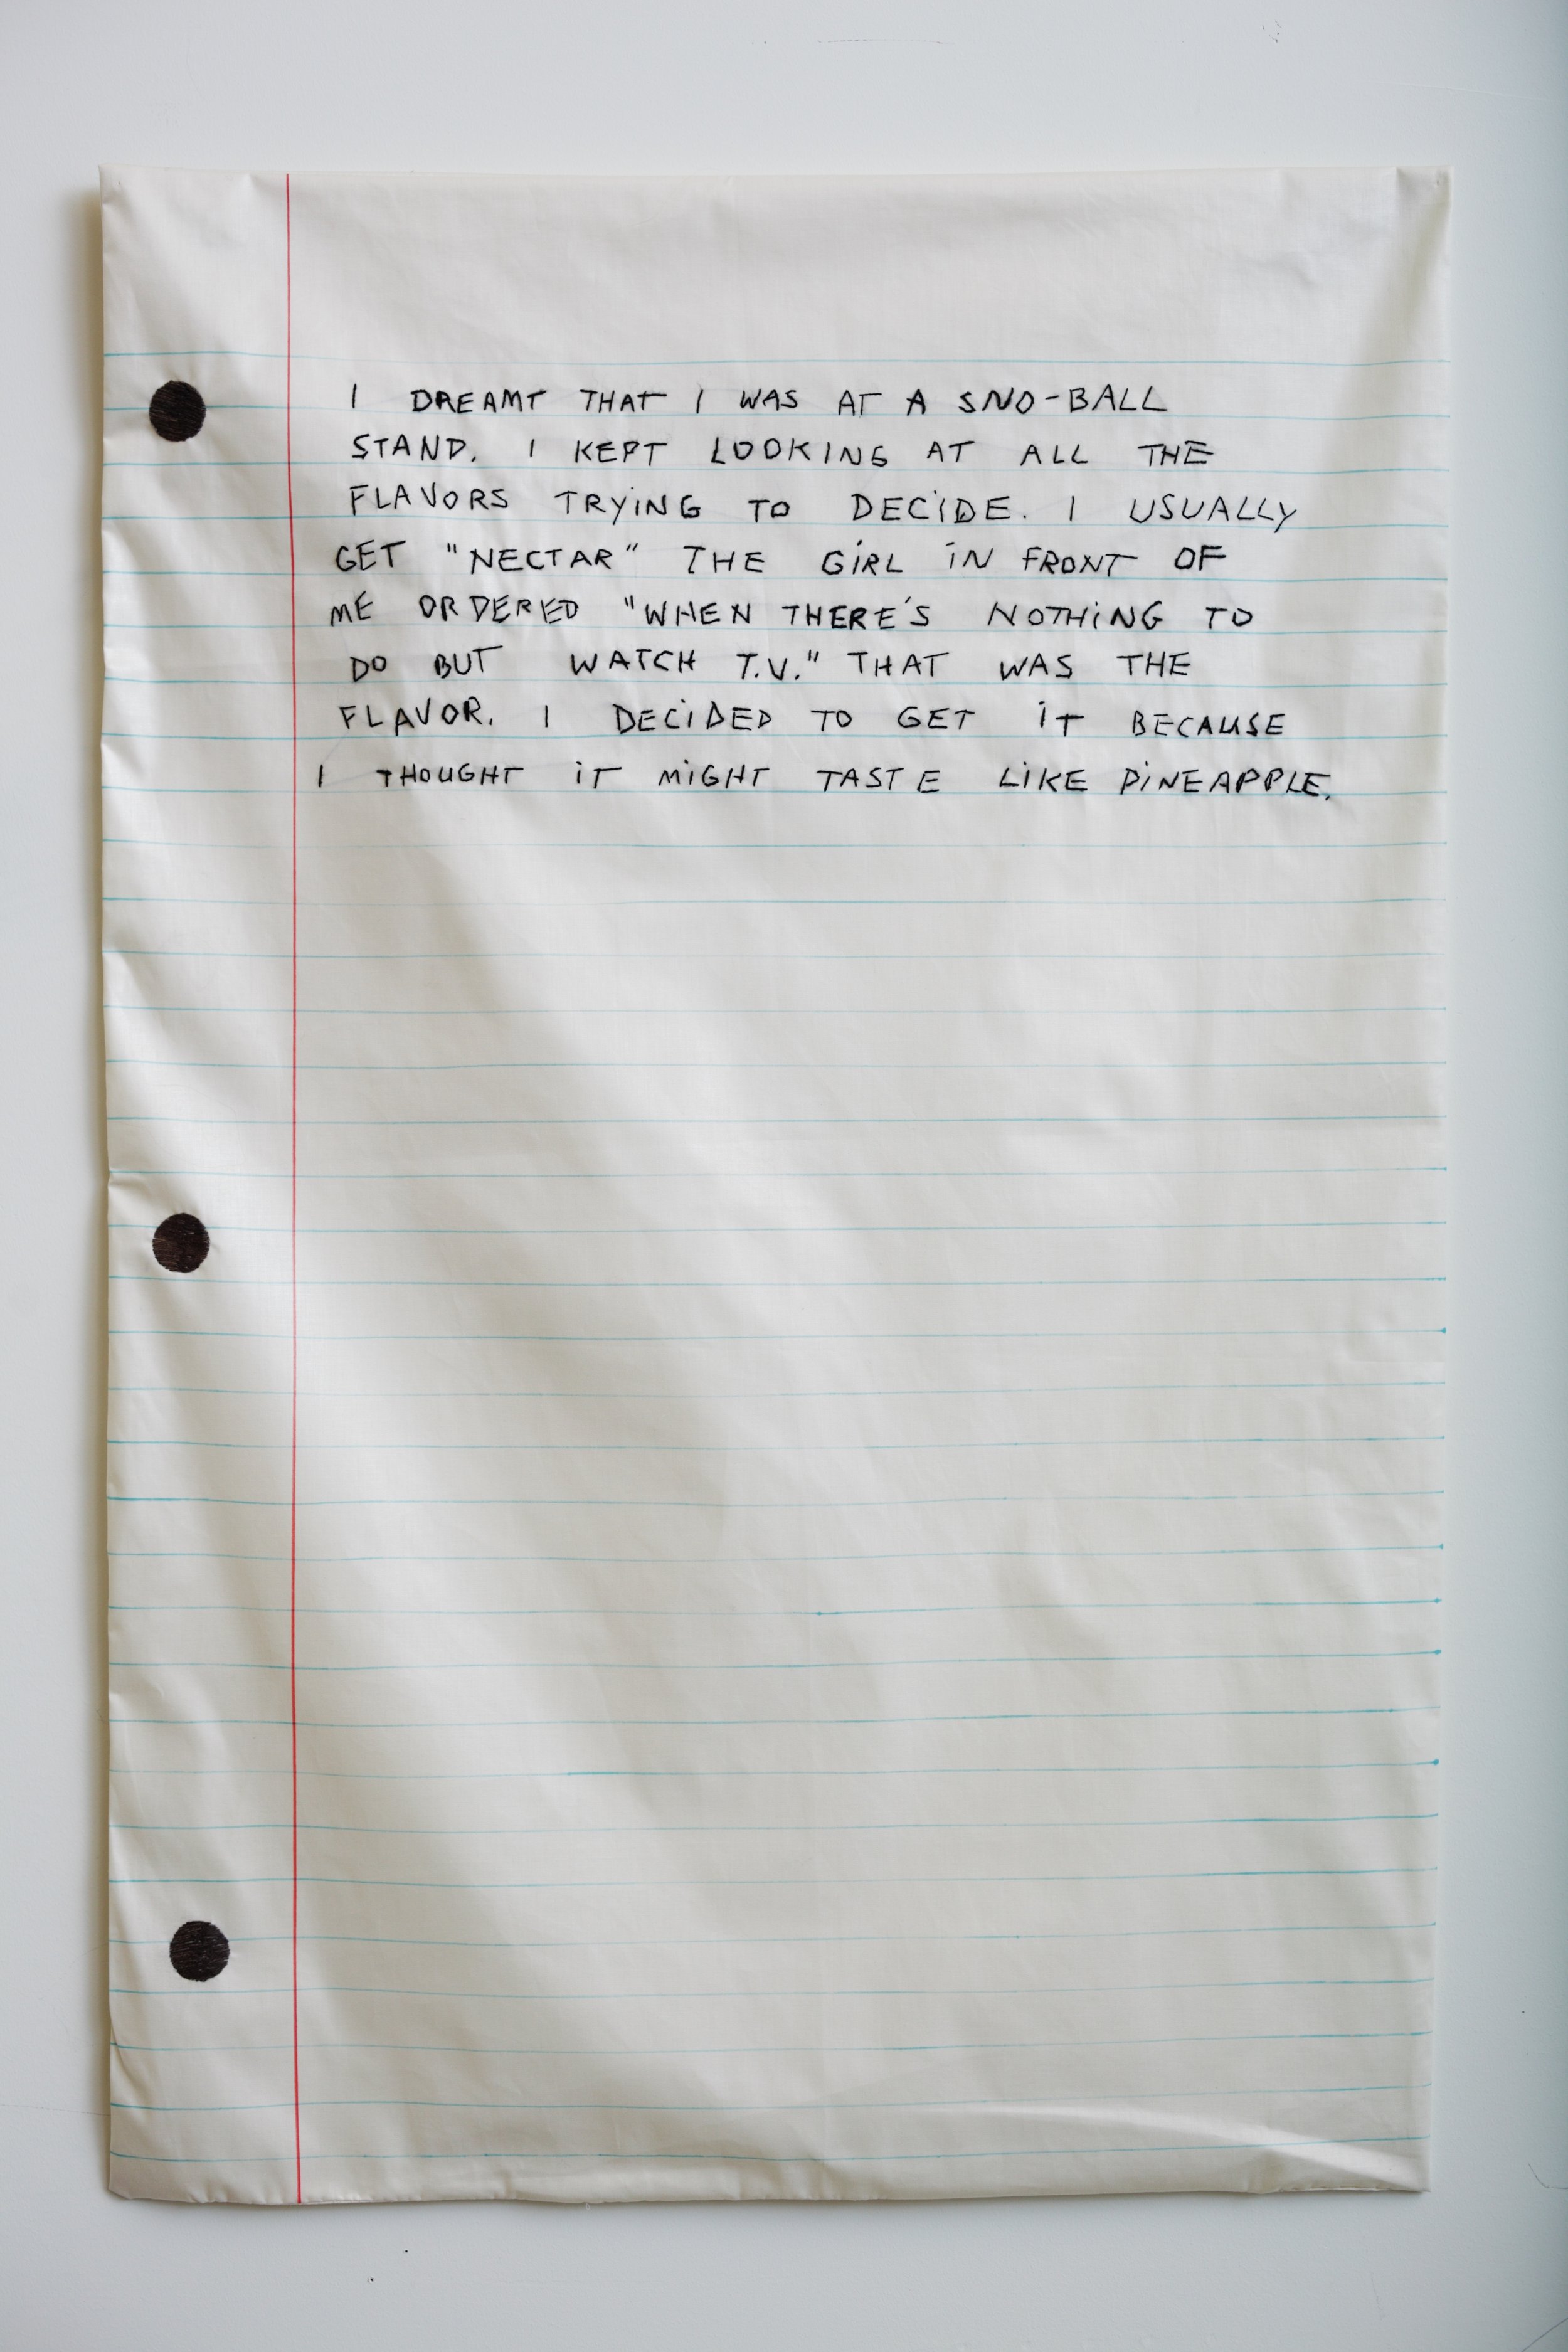 I DREAMT THAT I WAS AT A SNO-BALL
STAND. I KEPT LOOKING AT ALL THE
FLAVORS TRYING TO DECIDE. I USUALLY
GET "NECTAR" THE GIRL IN FRONT OF
ME ORDERED "WHEN THERE'S NOTHING TO
DO BUT WATCH T.V." THAT WAS THE
FLAVOR. I DECIDED TO GET IT BECAUSE
I THOUGHT IT MIGHT TASTE LIKE PINEAPPLE.